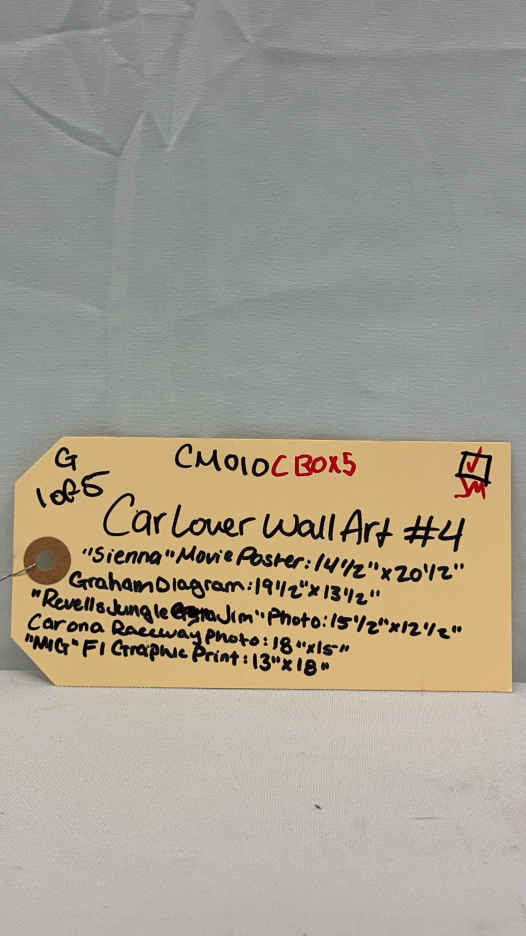 G
1 of 5
CM010CBOX5
JM
Car Lover Wall Art #4
"Sienna" Movie Poster: 14 1/2" x 20 1/2"
Graham Diagram: 19 1/2" x 13 1/2"
"Revells Jungle Jim" Photo: 15 1/2" x 12 1/2"
Carona Raceway Photo: 18" x 15"
"MIG" F1 Graphic Print: 13" x 18"